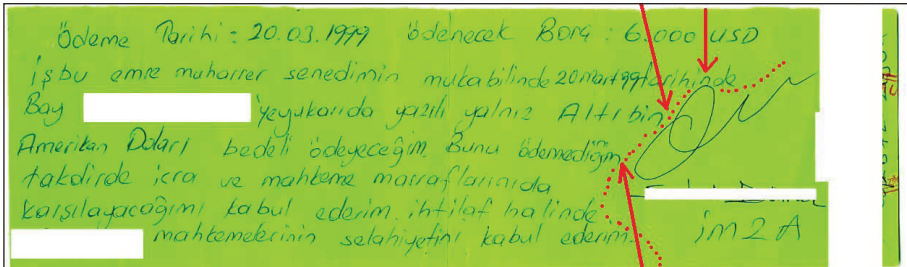 Ödeme Tarihi : 20.03.1999 ödenecek Borç : 6.000 USD
işbu emre muharrer senedimin mukabilinde 20 mart 99 tarihinde
Bay 'ye yukarıda yazılı yalnız Altı bin
Amerikan Doları bedeli ödeyeceğim. Bunu ödemediğim
takdirde icra ve mahkeme masraflarınıda
karşılayacağımı kabul ederim. ihtilaf halinde
mahkemelerinin selahiyetini kabul ederim.
imza